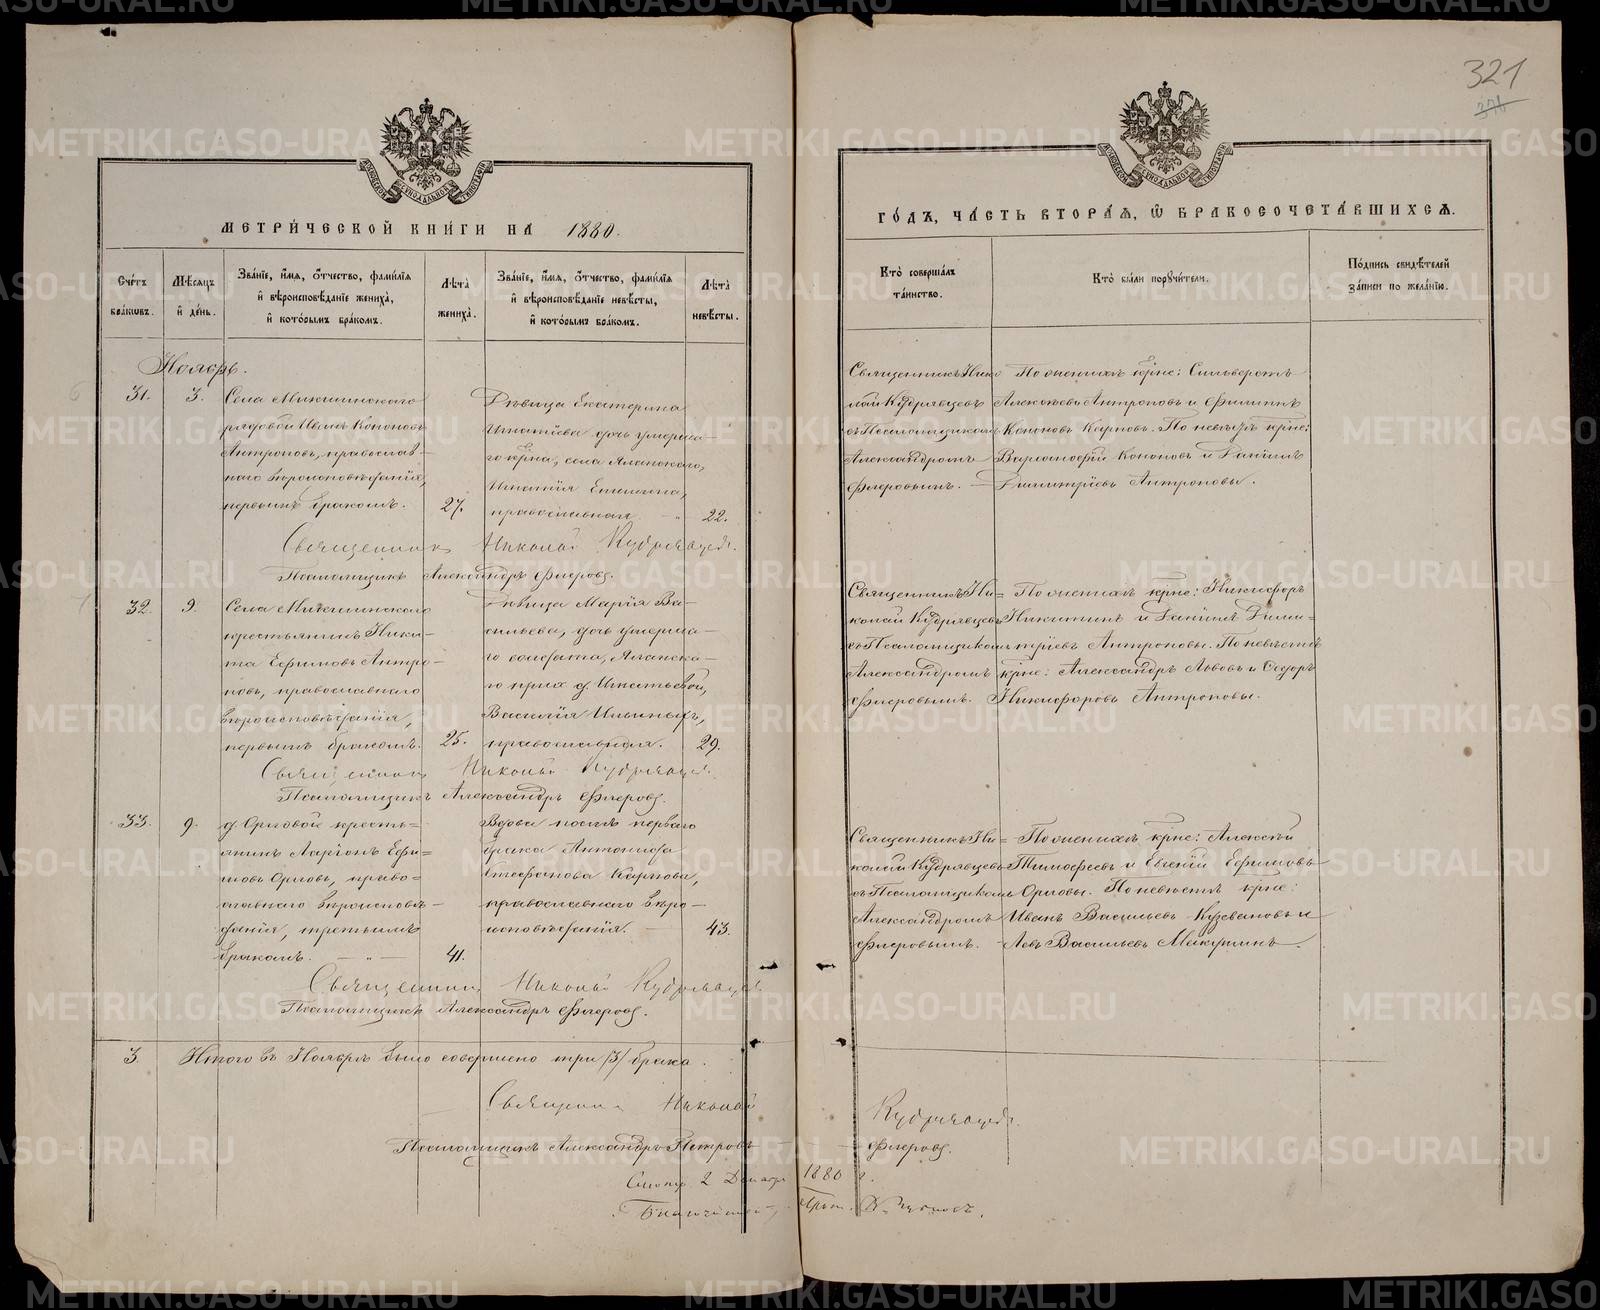 321
МЕТРИ́ЧЕСКОЙ КНИ́ГИ НА 1880.
ГО́ДЪ, ЧА́СТЬ ВТОРА́Я, Ѽ БРАКОСОЧЕТА́ВШИХСЯ.
Сче́тъ бра́ковъ.
Мѣ́сяцъ и҆ де́нь.
Зва́нїе, и҆́мя, о҆́тчество, фами́лїя и҆ вѣроисповѣ́данїе жениха̀, и҆ кото́рымъ бра́комъ.
Лѣ́та жениха̀.
Зва́нїе, и҆́мя, о҆́тчество, фами́лїя и҆ вѣроисповѣ́данїе невѣ́сты, и҆ кото́рымъ бра́комъ.
Лѣ́та невѣ́сты.
Кто̀ соверша́лъ та́инство.
Кто̀ бы́ли поручи́тели.
По́дпись свидѣ́телей за́писи по жела́нїю.
Ноябрь.
31.
3.
Села Микшинскаго
рядовой Иванъ Кононовъ
Антроповъ, православ-
наго вѣроисповѣданія,
первымъ бракомъ.
27.
Дѣвица Екатерина
Игнатіева дочь умерша-
го крѣна, села Яланскаго,
Игнатія
православная
22.
Священникъ Нико
лай Кудрявцевъ
съ Псаломщикомъ
Александромъ
Флеровымъ.
По женихѣ крѣне: Сильверстъ
Алексѣевъ Антроповъ и Филиппъ
Кононовъ Карповъ. По невѣстѣ крѣне:
Варланофій Кононовъ и Данiилъ
Димитріевъ Антроповы.
Священникъ Николай Кудрявцевъ.
Псаломщикъ Александръ Флеровъ.
32.
9.
Села Микшинскаго
крестьянинъ Ники-
та Ефимовъ Антро-
повъ, православнаго
вѣроисповѣданія,
первымъ бракомъ.
25.
Дѣвица Марія Ва-
сильева, дочь умерша-
го солдата, Яланска-
го прих д. Игнатьевой,
Василія Ильиныхъ,
православная.
29.
Священникъ Ни=
колай Кудрявцевъ
съ Псаломщикомъ
Александромъ
Флеровымъ.
По женихѣ крѣне: Никифоръ
Никитинъ и Даніилъ Дими=
тріевъ Антроповы. По невѣстѣ
крѣне: Александръ Львовъ и Сидоръ
Никифоровъ Антроповы.
Священникъ Николай Кудрявцевъ
Псаломщикъ Александръ Флеровъ.
33.
9.
д. Орловой кресть=
янинъ Ларіонъ Ефи=
мовъ Орловъ, право-
славнаго вѣроисповѣ-
данія, третьимъ
бракомъ.
41.
Вдова послѣ перваго
брака Антонида
Стефанова Карпова,
православнаго вѣро-
исповѣданія.
43.
Священникъ Ни=
колай Кудрявцевъ
съ Псаломщикомъ
Александромъ
Флеровымъ.
По женихѣ крѣне: Алексѣй
Тимофеевъ и Евгеній Ефимовъ
Орловы. По невѣстѣ крѣне:
Иванъ Васильевъ и
Левъ Васильевъ Мекушинъ.
Священникъ Николай Кудрявцевъ
Псаломщикъ Александръ Флеровъ.
3.
Итого въ Ноябрѣ было совершено три /3/ брака.
Священникъ Николай Кудрявцевъ.
Псаломщикъ Александръ Петровъ Флеровъ.
2 Декабр 1880 г.
Благочинный,
METRIKI.GASO-URAL.RU